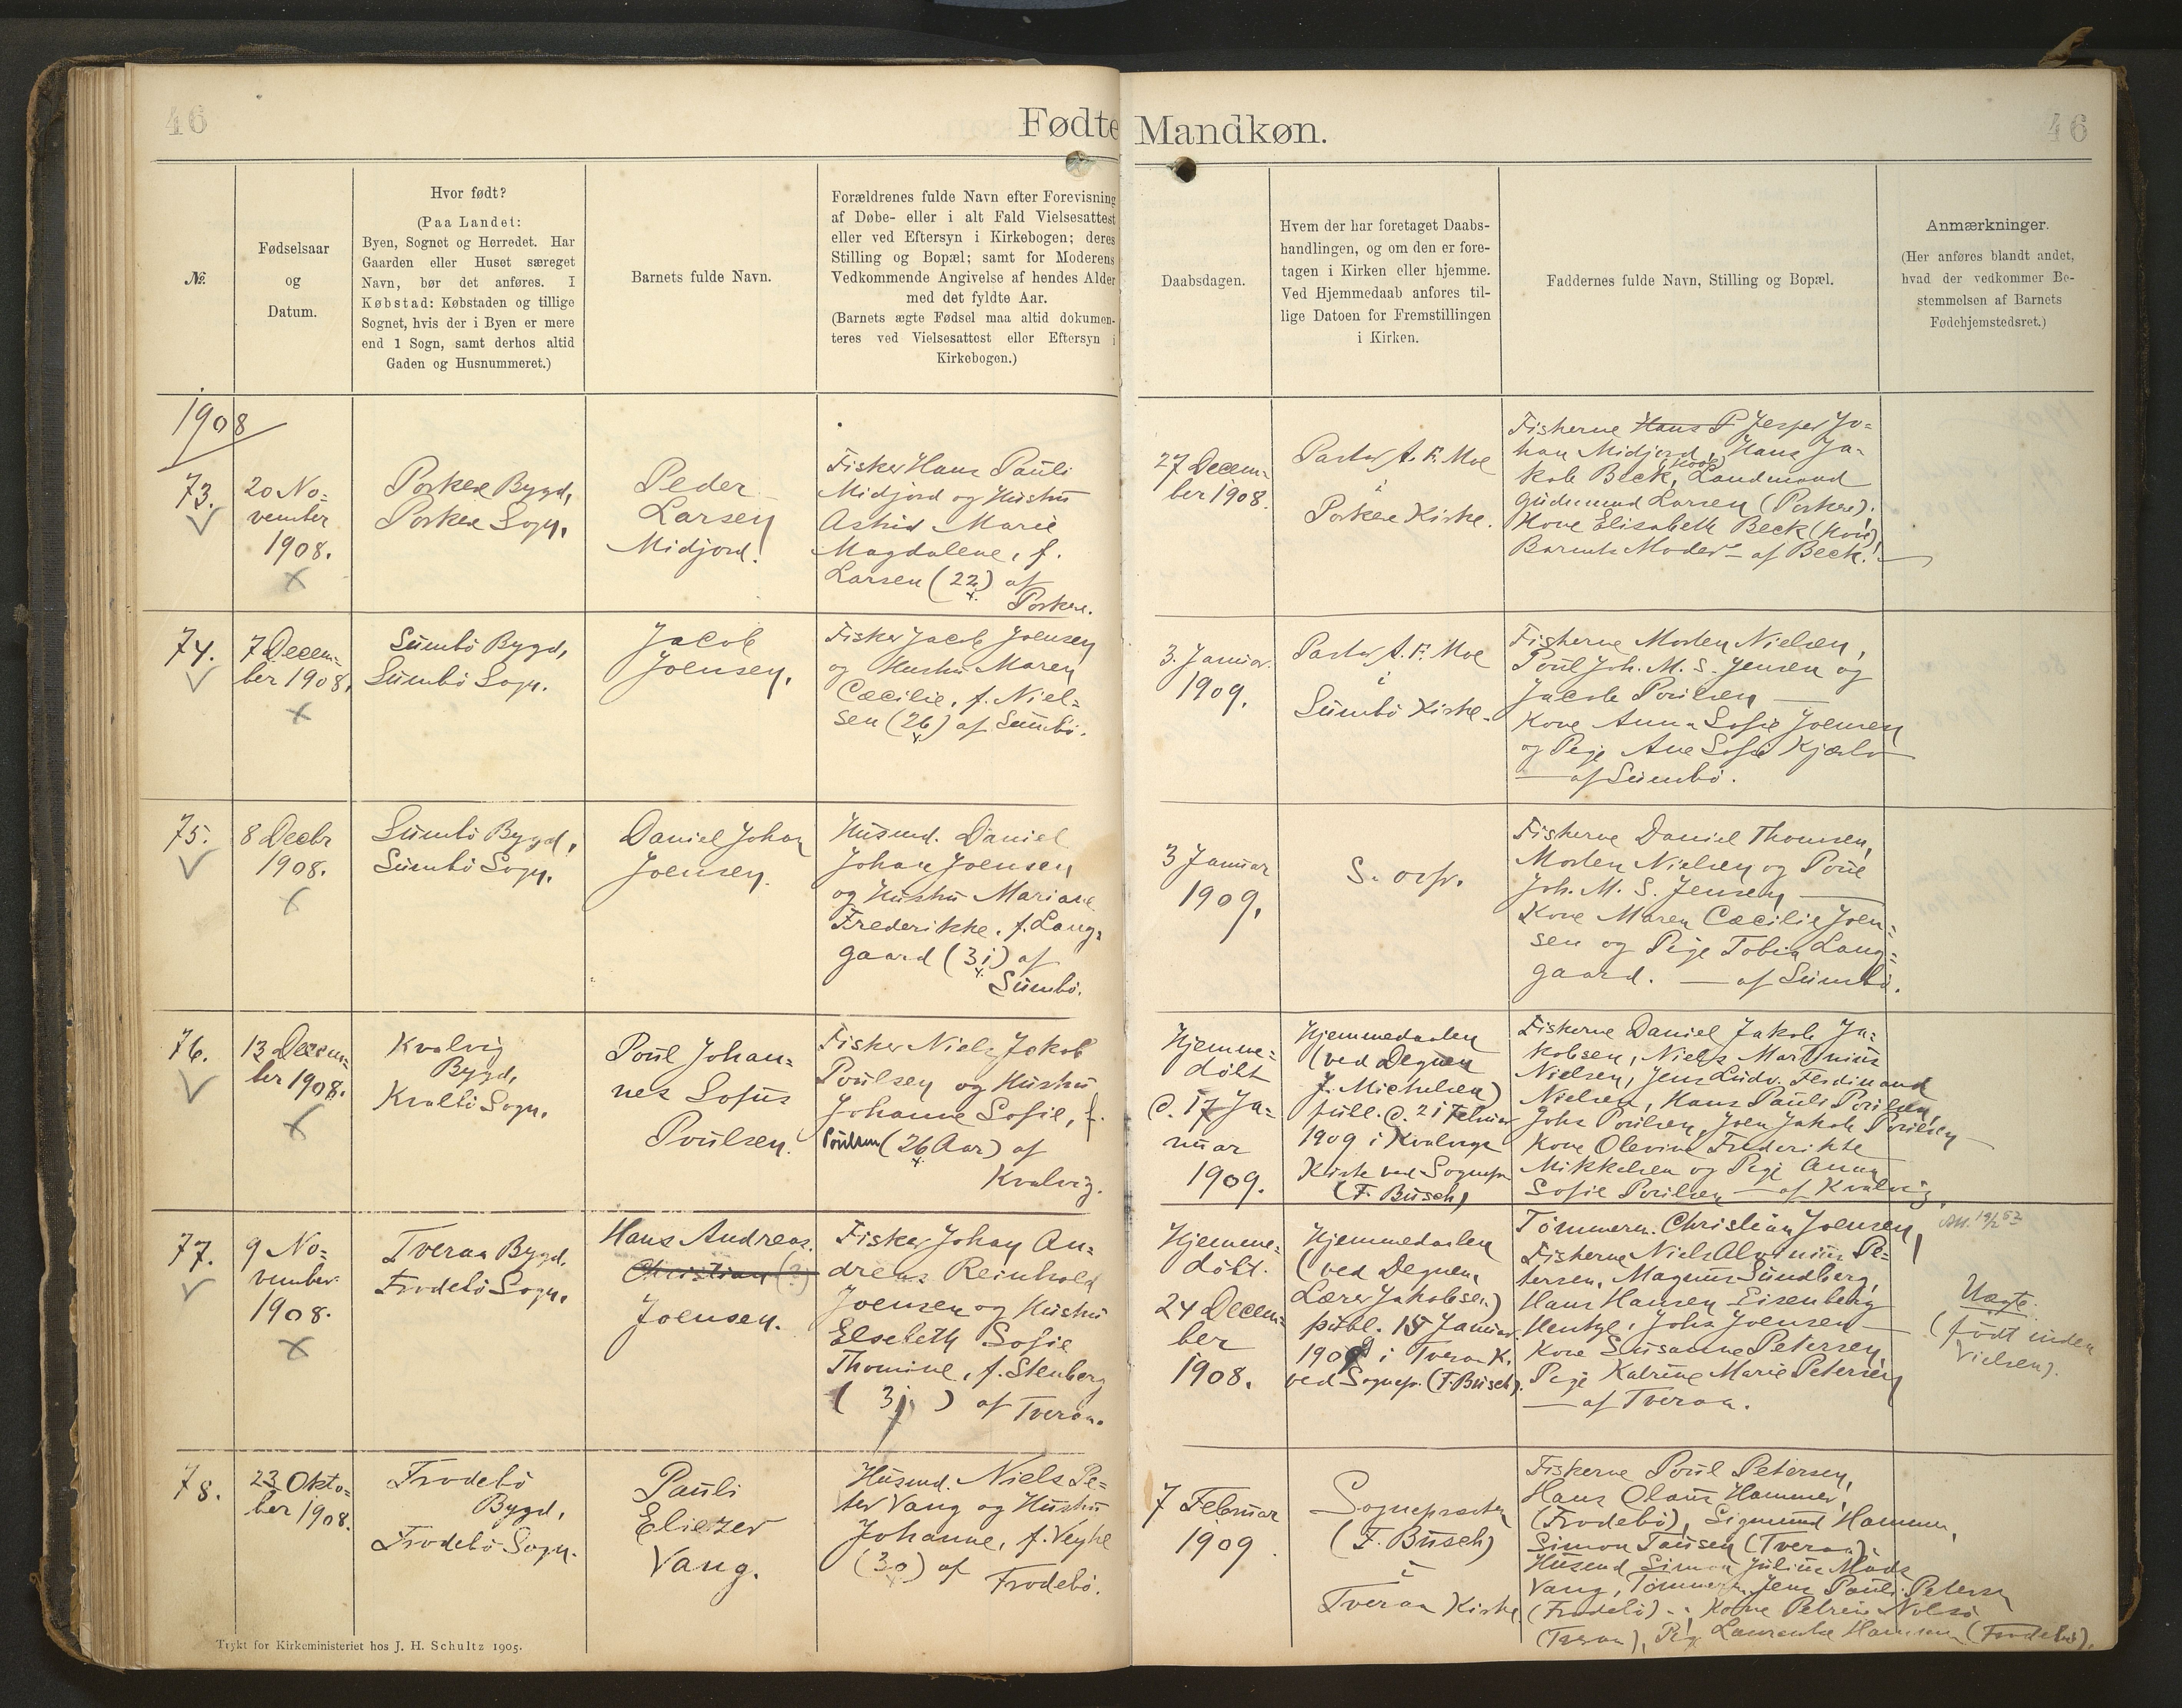 46
Fødte Mandkøn.
46
№
Fødselsaar
og
Datum.
Hvor født?
(Paa Landet:
Byen, Sognet og Herredet. Har
Gaarden eller Huset særeget
Navn, bør det anføres. I
Købstad: Købstaden og tillige
Sognet, hvis der i Byen er mere
end 1 Sogn, samt derhos altid
Gaden og Husnummeret.)
Barnets fulde Navn.
Forældrenes fulde Navn efter Forevisning
af Døbe- eller i alt Fald Vielsesattest
eller ved Eftersyn i Kirkebogen; deres
Stilling og Bopæl; samt for Moderens
Vedkommende Angivelse af hendes Alder
med det fyldte Aar.
(Barnets ægte Fødsel maa altid dokumen-
teres ved Vielsesattest eller Eftersyn i
Kirkebogen.)
Daabsdagen.
Hvem der har foretaget Daabs-
handlingen, og om den er fore-
tagen i Kirken eller hjemme.
Ved Hjemmedaab anføres til-
lige Datoen for Fremstillingen
i Kirken.
Faddernes fulde Navn, Stilling og Bopæl.
Anmærkninger.
(Her anføres blandt andet,
hvad der vedkommer Be-
stemmelsen af Barnets
Fødehjemstedsret.)
1908
73.
20 No=
vember
1908.
Porkere Bygd,
Porkere Sogn.
Peder
Larsen
Midjord.
Fisker Hans Pauli
Midjord og Hustru
Astrid Marie
Magdalene, f.
Larsen (22) af
Porkere.
27 Decem=
ber 1908.
Pastor A. F. Moe
i
Porkere Kirke.
Fiskerne Hans P Jesper Jo=
han Midjord, Hans Ja=
kob Beck, (Hove) Landmand
Gudmund Larsen (Porkere).
Kone Elisabeth Beck (Hove),
Barnets Moder – af Beck.
74.
7 Decem=
ber 1908.
Sumbö Bygd,
Sumbö Sogn.
Jacob
Joensen.
Fisker Jacob Joensen
og Hustru Maren
Cæcilie, f. Niel=
sen (26) af Sumbö.
3. Januar
1909.
Pastor A. F. Moe
i
Sumbö Kirke.
Fiskerne Morten Nielsen,
Poul Joh. M. S. Jensen og
Jacob Poulsen —
Kone Anna Sofie Joensen
og Pige Ane Sofie Kjærbo
— af Sumbö.
75.
8 Decbr
1908.
Sumbö Bygd,
Sumbö Sogn.
Daniel Johan
Joensen.
Husmd. Daniel
Johan Joensen
og Hustru Mariane
Frederikke, f. Lang=
gaard (31) af
Sumbö.
3 Januar
1909.
S. ovfr.
Fiskerne Daniel Thomsen,
Morten Nielsen og Poul
Joh. M. S. Jensen —
Kone Maren Cæcilie Joen=
sen og Pige Tobia Lang=
gaard. — af Sumbö.
76.
13 Decem=
ber 1908.
Kvalvig
Bygd,
Kvalbö Sogn.
Poul Johan=
nes Sofus
Poulsen.
Fisker Niels Jakob
Poulsen og Hustru
Johanne Sofie, f.
Poulsen (26 Aar) af
Kvalvig.
Hjemme=
döbt
d. 17 Ja=
nuar
1909.
Hjemmedaaben
(ved Degnen
J. Michelsen)
publ. d. 21 Februar
1909 i Kvalvigs
Kirke ved Sognepr.
(F. Busch)
Fiskerne Daniel Jakob Ja=
kobsen, Niels Martinus
Nielsen, Jens Ludv. Ferdinand
Nielsen, Hans Pauli Poulsen,
Johs Poulsen, Joen Jakob Poulsen —
Kone Olevine Frederikke
Mikkelsen og Pige Anna
Sofie Poulsen — af Kvalvig.
77.
9 No=
vember
1908.
Tveraa Bygd,
Frodebö Sogn.
Hans Andreas
Christian (?)
Joensen.
Fisker Johan An=
dreas Reinhold
Joensen og Hustru
Elsebeth Sofie
Thomine, f. Stenberg
(31) af Tveraa.
Hjemme=
döbt.
24 Decem=
ber
1908.
Hjemmedaaben
(ved Degnen,
Lærer Jakobsen)
publ. 15 Januar
1909 i Tveraa K.
ved Sognepr. (F. Busch).
Tömmerm. Christian Joensen,
Fiskerne Niels Alvinius Pe=
tersen, Magnus Sundberg,
Hans Hansen Eisenberg
Johs Joensen —
Kone Susanne Petersen,
Pige Katrine Marie Petersen
— af Tveraa.
Uægte.
(födt inden
Vielsen).
78.
23 Okto=
ber 1908.
Frodebö
Bygd,
Frodebö Sogn.
Pauli
Eliezer
Vang.
Husmd. Niels Pe=
ter Vang og Hustru
Johanne, f. Veyhe
(30) af
Frodebö.
7 Februar
1909.
Sognepræsten
(F. Busch)
i
Tveraa Kirke
Fiskerne Poul Petersen,
Hans Olaus Hammer,
(Frodebö), Sigmund Hammer,
Simon Tausen (Tveraa),
Husmd Simon Julius Mads
Vang, Tömmerm. Jens Pauli Petersen
(Frodebö) – Kone Petrine Nolsö
(Tveraa), Pige Laurentse Hansen (Frodebö).
Trykt for Kirkeministeriet hos J. H. Schultz 1905.